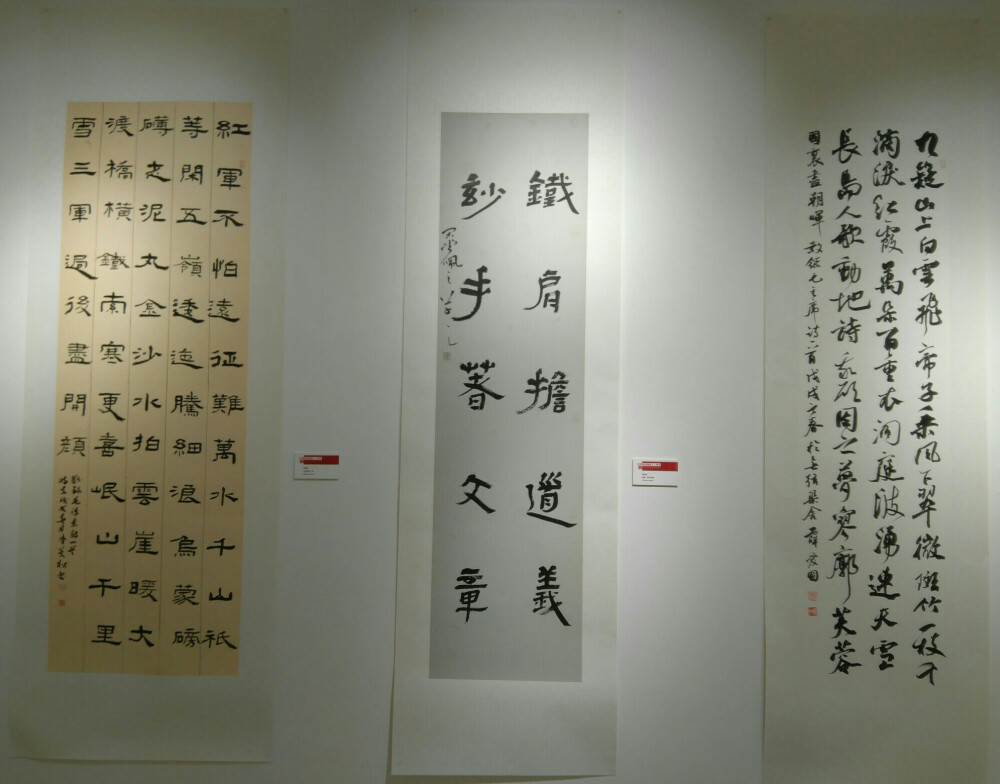 九嶷山上白雲飛帝子乘風下翠微斑竹一枝千
滴淚紅霞萬朵百重衣洞庭波湧連天雪
長島人歌動地詩我欲因之夢寥廓芙蓉
國裏盡朝暉 敬錄毛主席詩一首戊戌之春於
鐵肩擔道義
玅手著文章
紅軍不怕遠征難萬水千山祇
等閑五嶺逶迤騰細浪烏蒙磅
礡走泥丸金沙水拍雲崖暖大
渡橋橫鐵索寒更喜岷山千里
雪三軍過後盡開顏